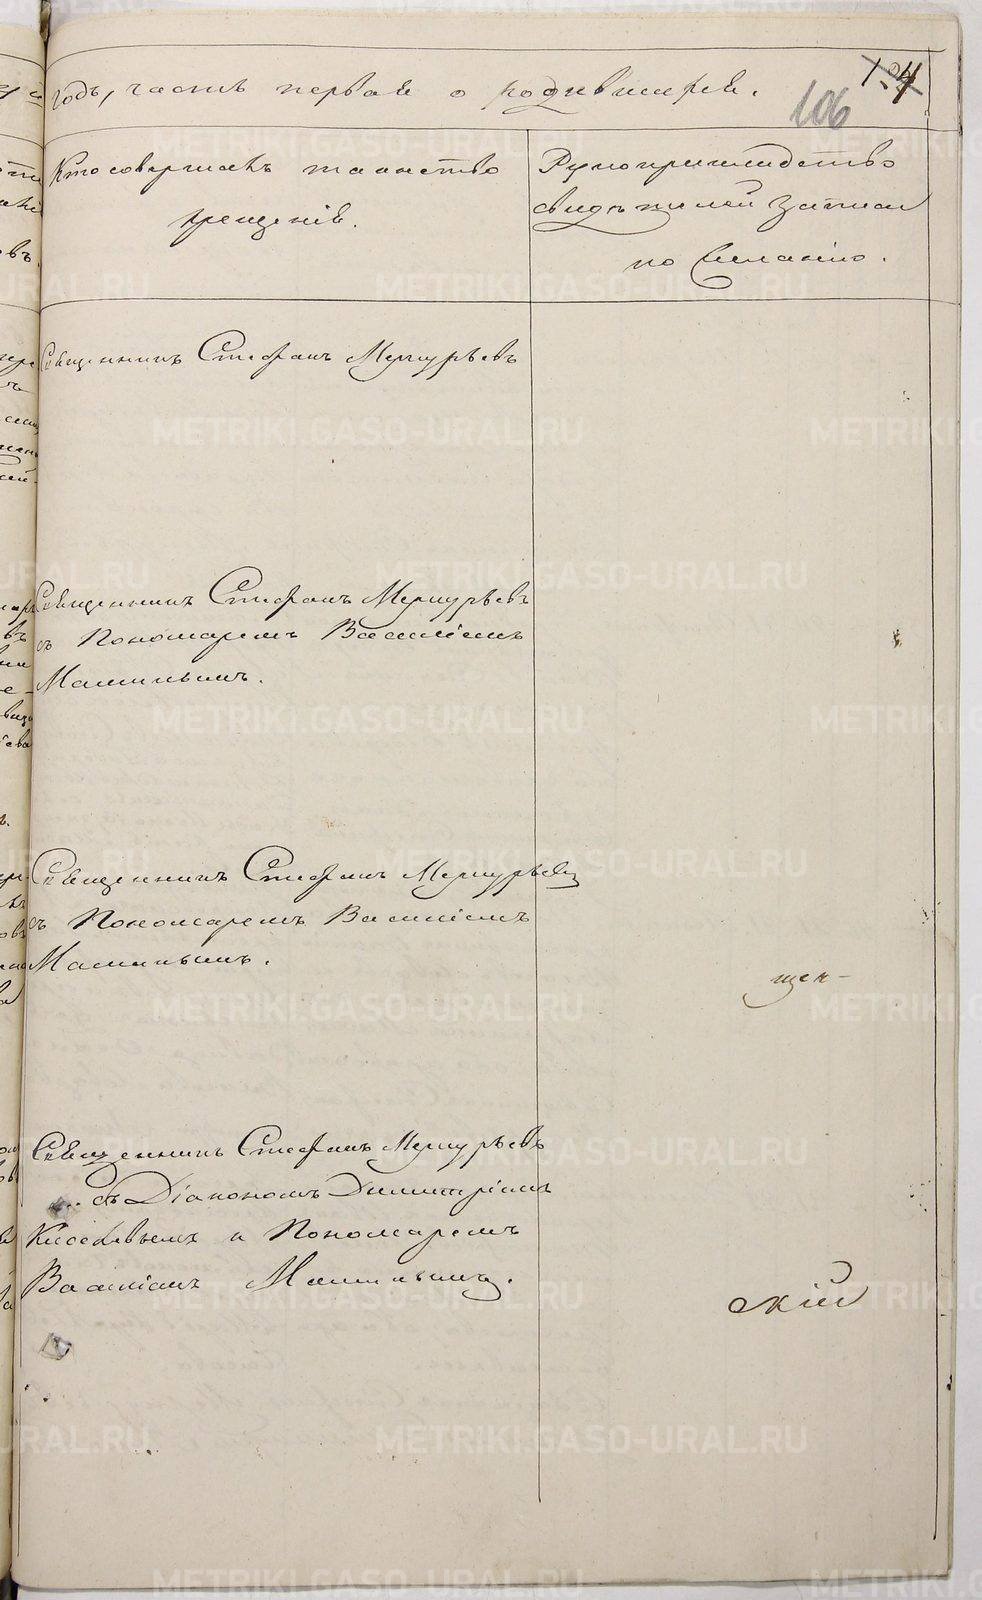 годъ, часть первая о родившихся.
106
Кто совершалъ таинство
крещенія.
Рукоприкладство
свидѣтелей записи
по желанію.
Священникъ Стефанъ Меркурьевъ
Священникъ Стефанъ Меркурьевъ
съ Пономаремъ Василіемъ
Маминымъ.
Священникъ Стефанъ Меркурьевъ
съ Пономаремъ Василіемъ
Маминымъ.
щен-
Священникъ Стефанъ Меркурьевъ
съ Діакономъ Димитріемъ
Киселевымъ и Пономаремъ
Василіемъ Маминымъ.
скій
METRIKI.GASO-URAL.RU